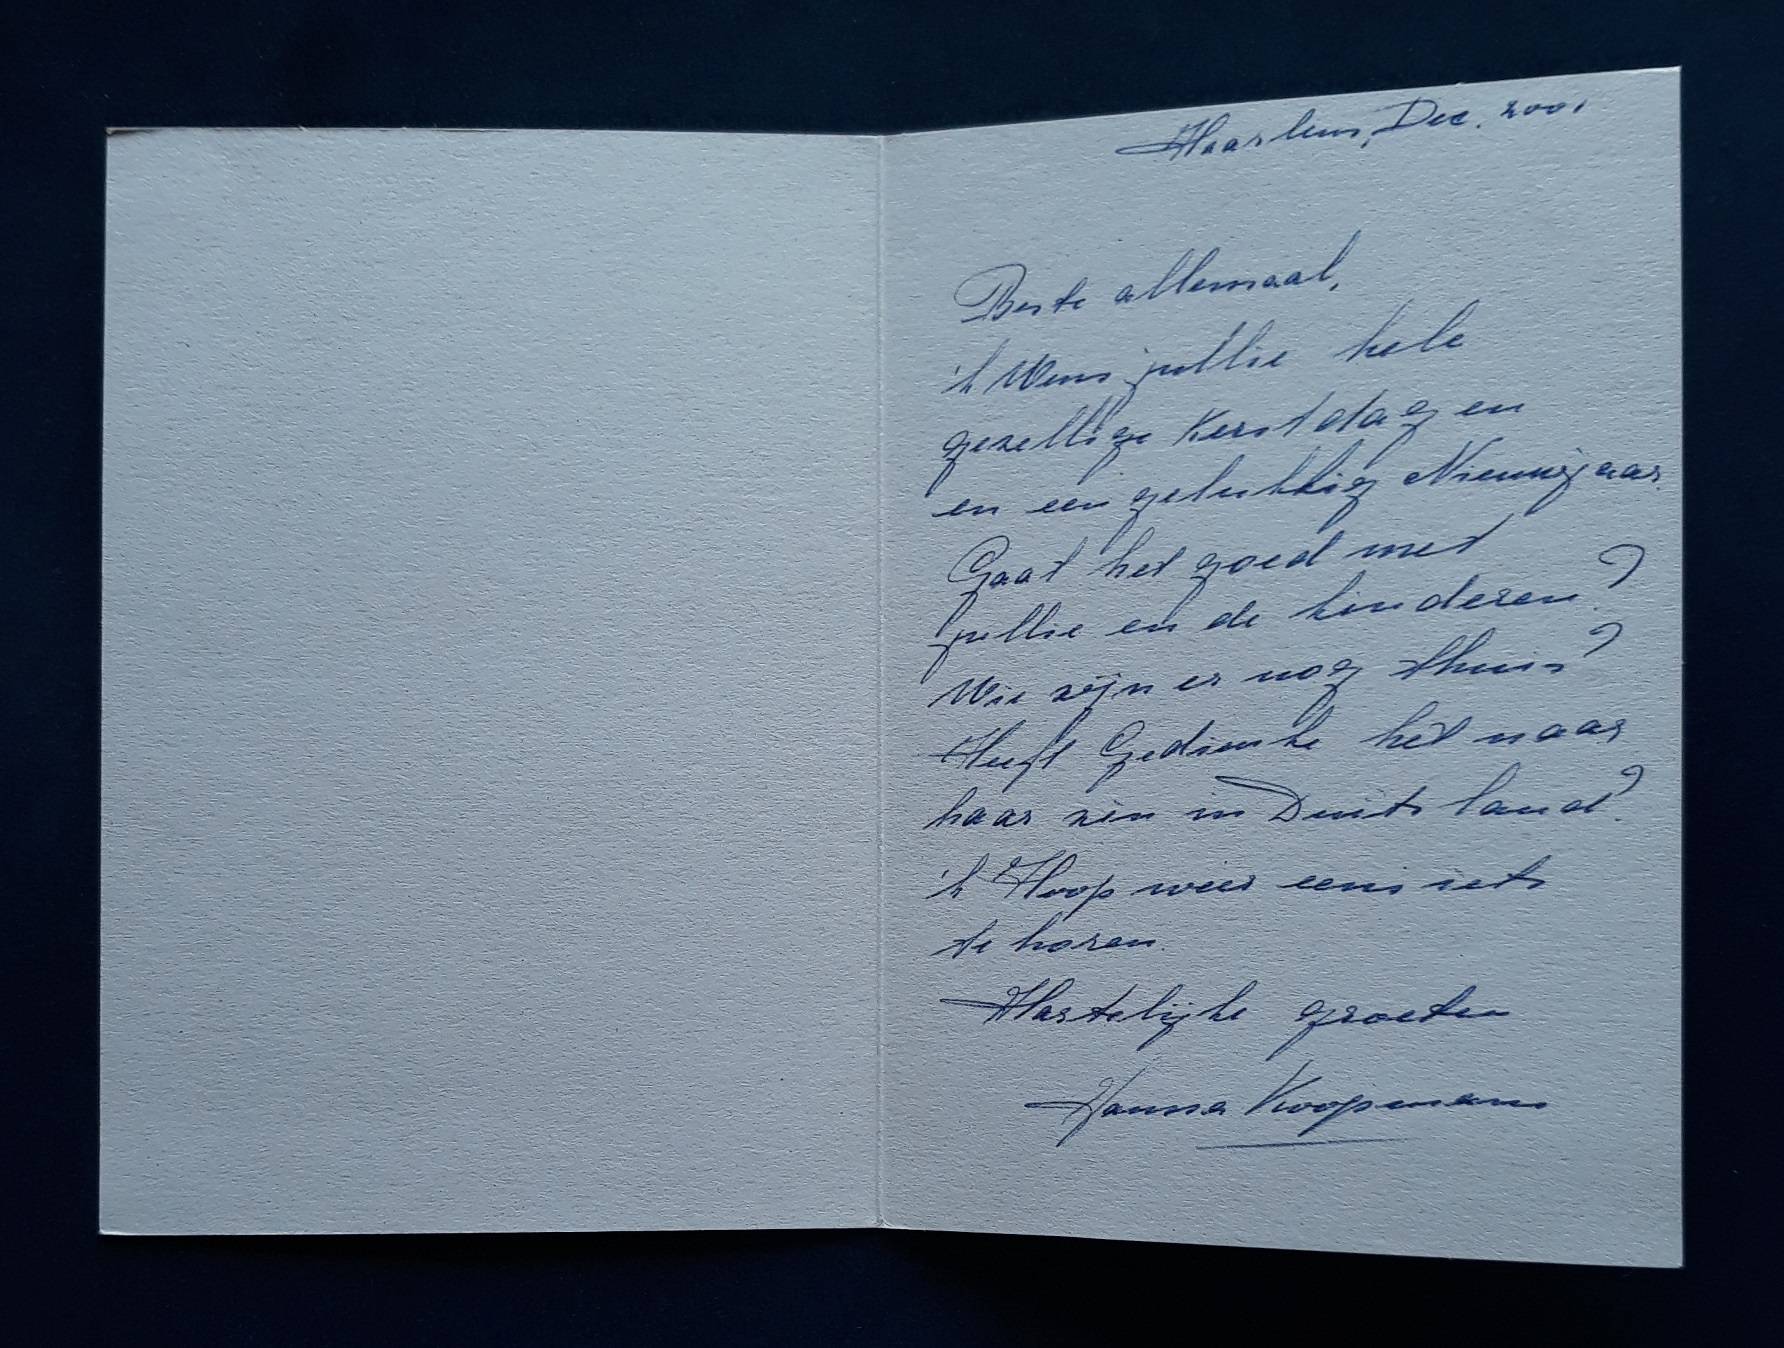 Haarlem, Dec. 2001
Beste allemaal,
'k Wens jullie hele
gezellige Kerstdagen
en een gelukkig Nieuwjaar.
Gaat het goed met
jullie en de kinderen?
Wie zijn er nog thuis?
Heeft het naar
haar zin in Duitsland?
'k Hoop weer eens iets
te horen.
Hartelijke groeten
Hanna Koopmans